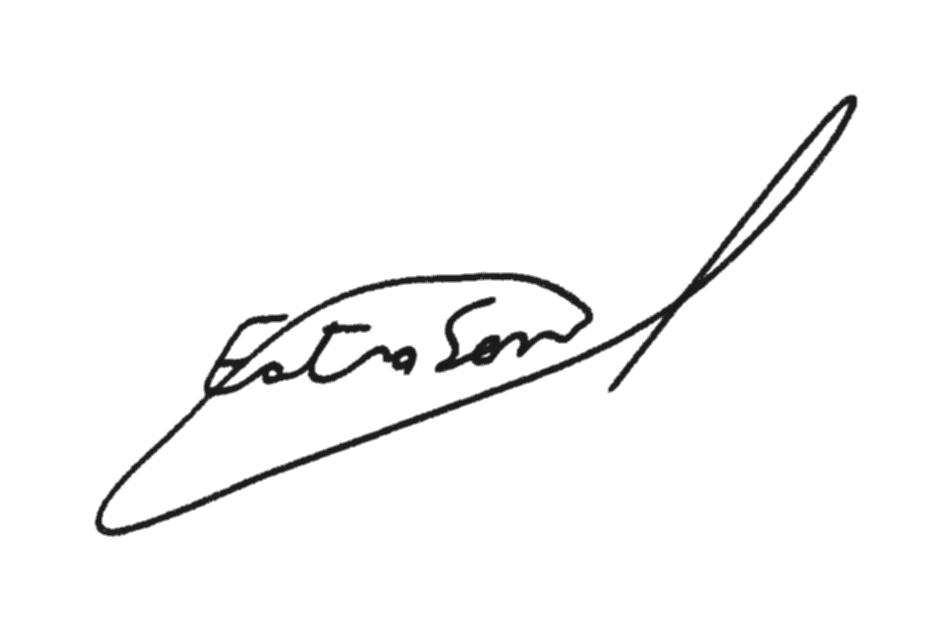 Estra Son